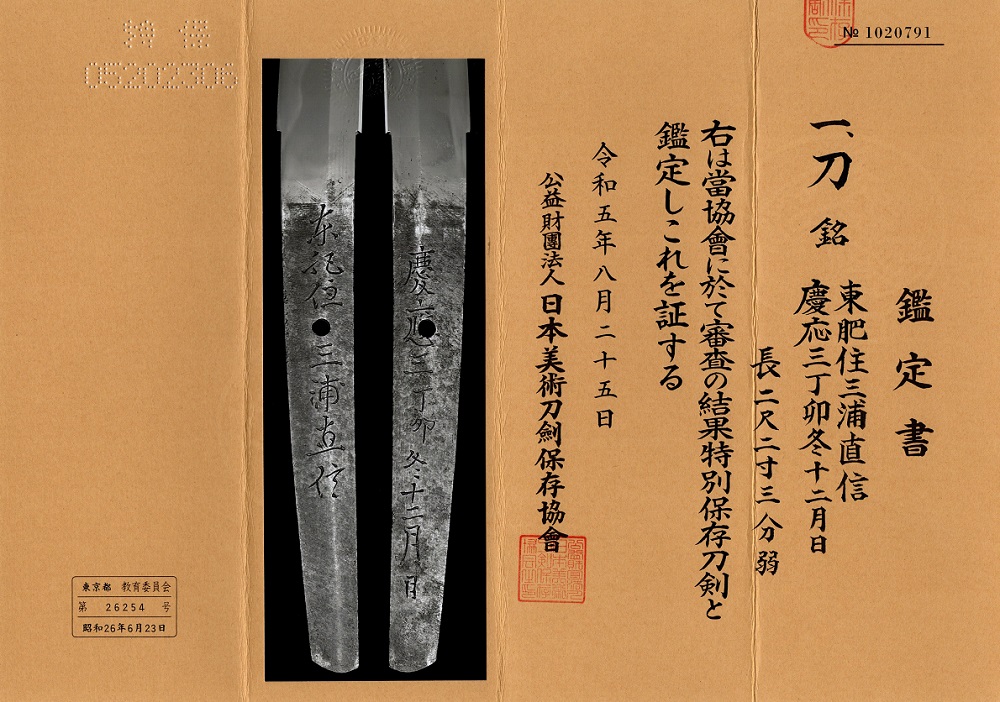 № 1020791
鑑定書
一、刀 銘 東肥住三浦直信
慶応三丁卯冬十二月日
長二尺二寸三分弱
右は當協會に於て審査の結果特別保存刀剣と
鑑定しこれを証する
令和五年八月二十五日
公益財團法人 日本美術刀劍保存協會
慶応三丁卯冬十二月日
東肥住三浦直信
特保
05202306
東京都 教育委員会
第 26254 号
昭和26年6月23日